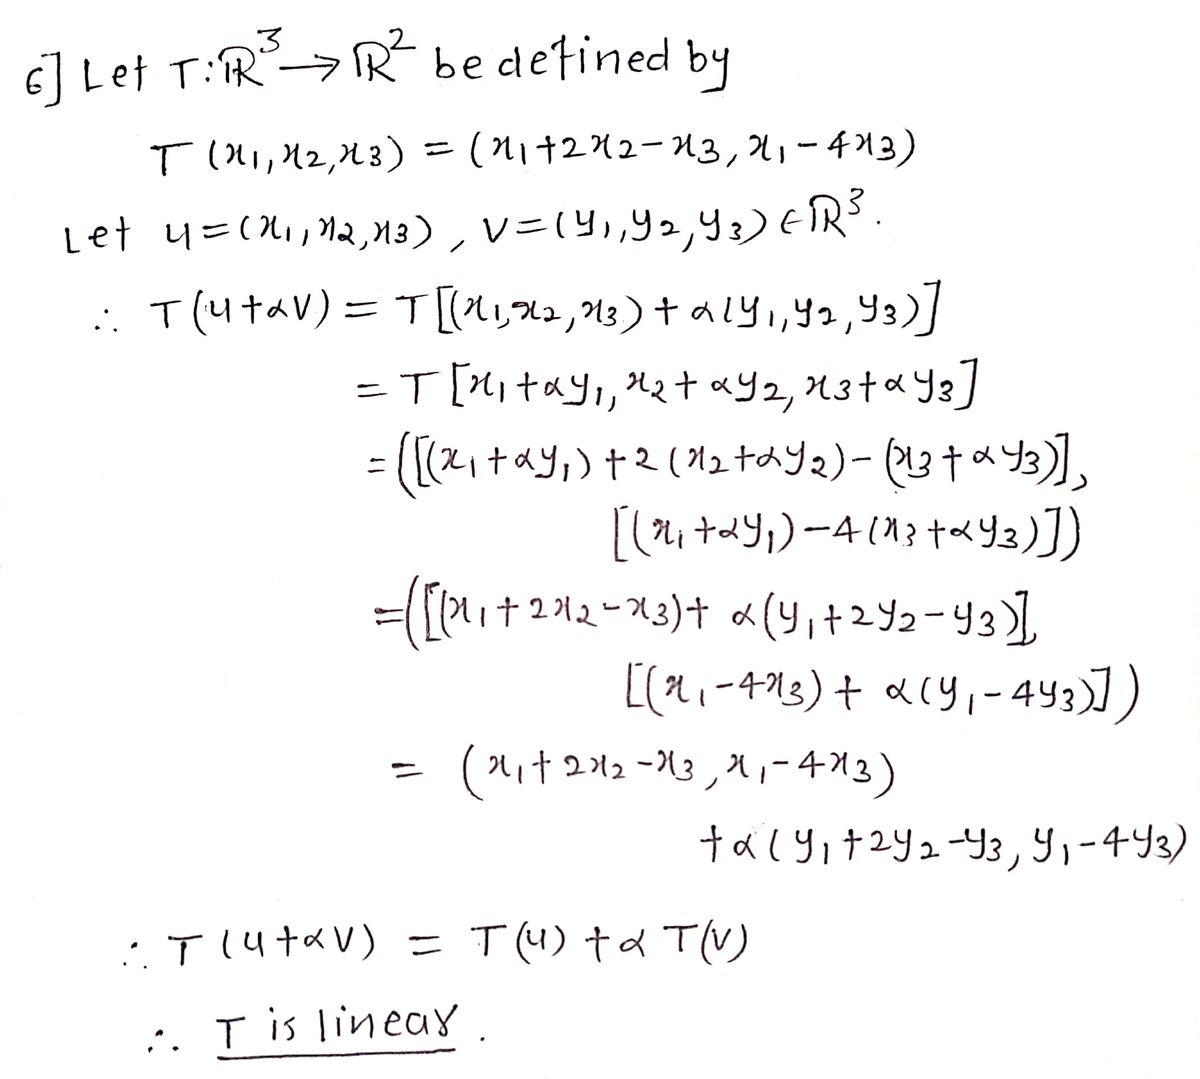 6] Let T:ℝ³→ℝ² be defined by
T(x₁,x₂,x₃) = (x₁+2x₂-x₃, x₁-4x₃)
Let u=(x₁,x₂,x₃), v=(y₁,y₂,y₃)∈ℝ³.
∴ T(u+αv) = T[(x₁,x₂,x₃)+α(y₁,y₂,y₃)]
= T[x₁+αy₁, x₂+αy₂, x₃+αy₃]
=([(x₁+αy₁)+2(x₂+αy₂)-(x₃+αy₃)],
[(x₁+αy₁)-4(x₃+αy₃)])
=([(x₁+2x₂-x₃)+α(y₁+2y₂-y₃)],
[(x₁-4x₃)+α(y₁-4y₃)])
= (x₁+2x₂-x₃, x₁-4x₃)
+α(y₁+2y₂-y₃, y₁-4y₃)
∴ T(u+αv) = T(u)+αT(v)
∴ T is linear.